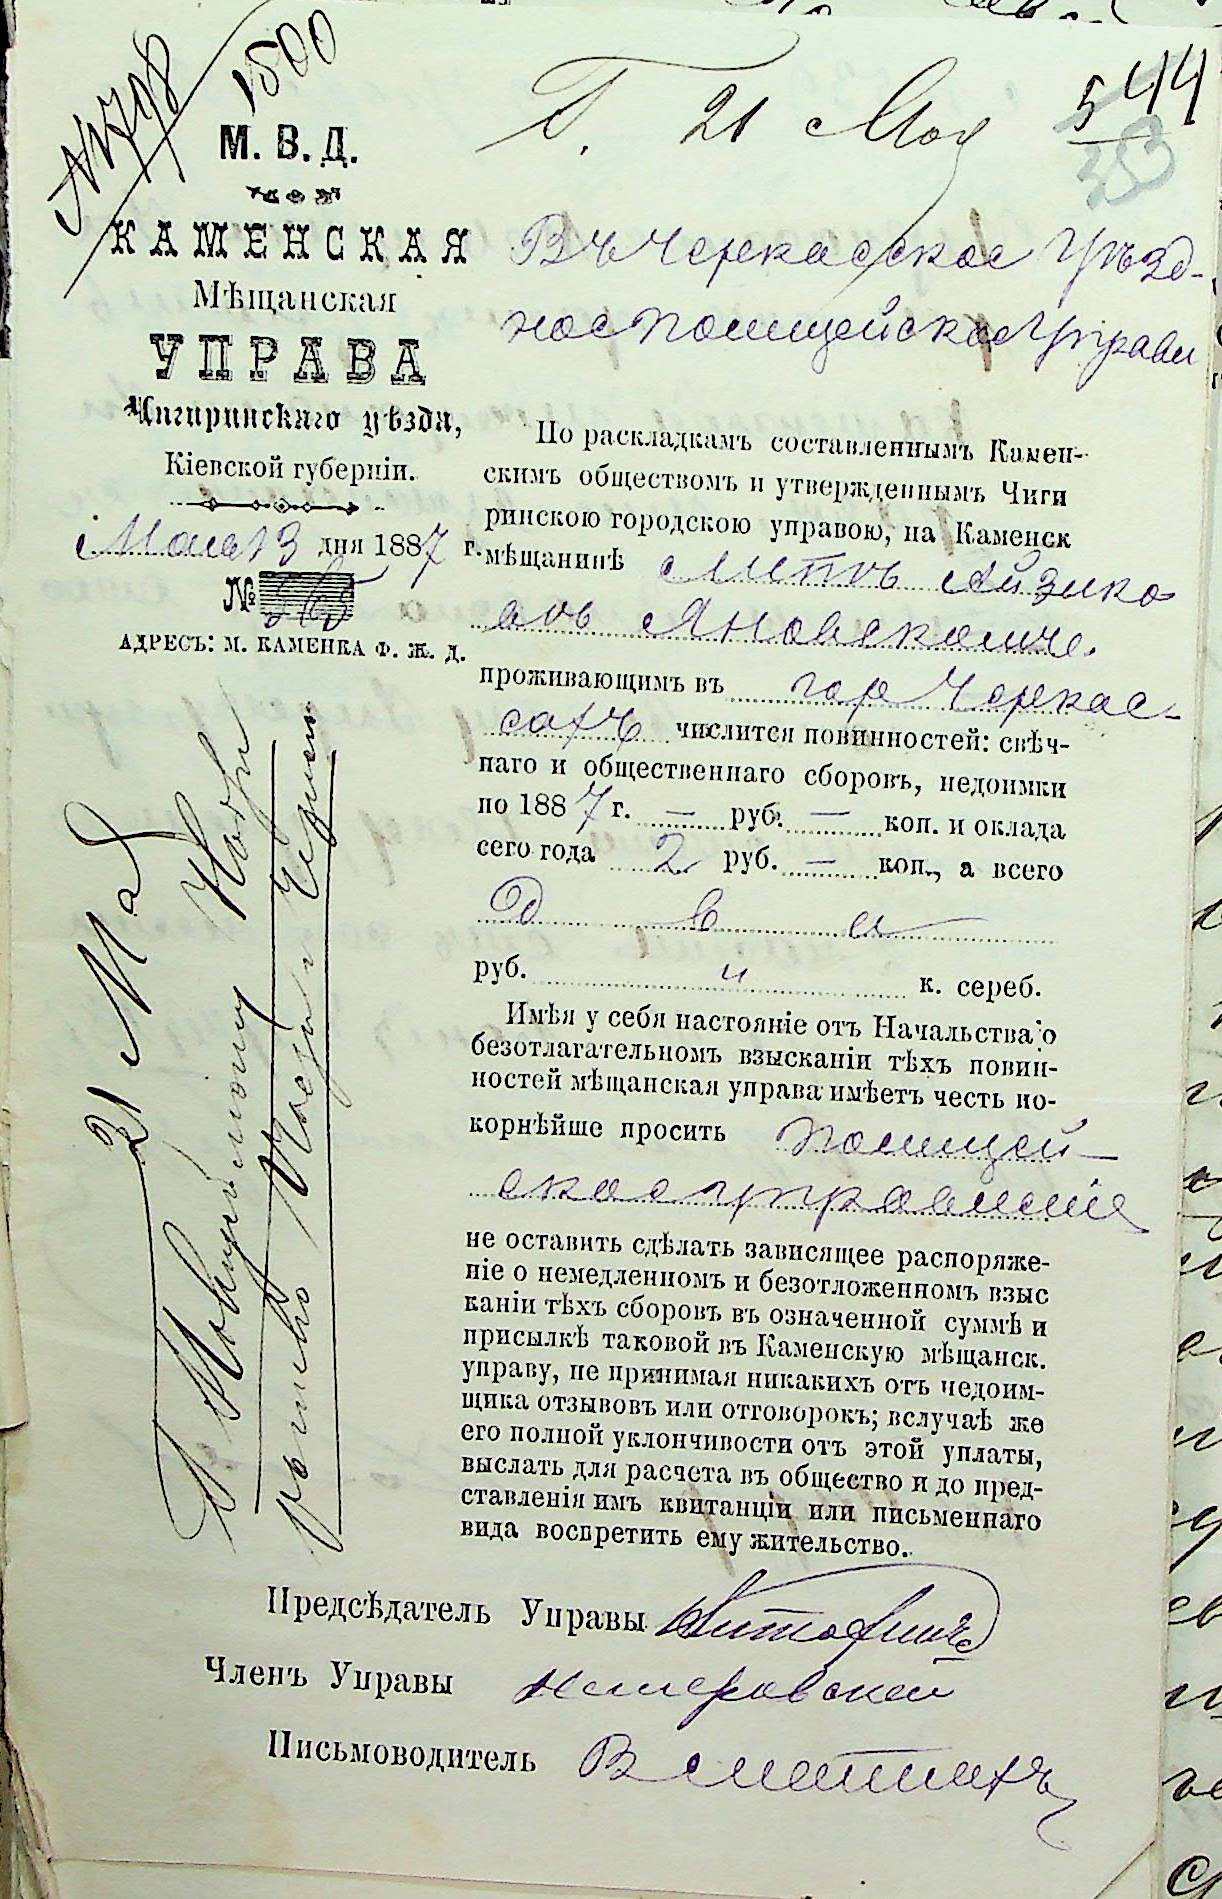 № 1798
1500
П. 21 Мая
544
353
М. В. Д.
КАМЕНСКАЯ
Мѣщанская
УПРАВА
Чигиринскаго уѣзда,
Кіевской губерніи.
Мая 13 дня 1887 г.
№ 565
АДРЕСЪ: М. КАМЕНКА Ф. Ж. Д.
Въ Черкасское Уѣзд-
ное Полицейское Управле
По раскладкамъ составленнымъ Камен-
скимъ обществомъ и утвержденнымъ Чиги
ринскою городскою управою, на Каменск
мѣщанинѣ Айзико
вѣ Яновскомъ
проживающимъ въ гор Черкас-
сахъ числится повинностей: свѣч-
наго и общественнаго сборовъ, недоимки
по 1887 г. — руб. — коп. и оклада
сего года 2 руб. — коп., а всего
Два
руб. " к. сереб.
Имѣя у себя настояніе отъ Начальства о
безотлагательномъ взысканіи тѣхъ повин-
ностей мѣщанская управа имѣетъ честь по-
корнѣйше просить Полицей-
ское управленіе
не оставить сдѣлать зависящее распоряже-
ніе о немедленномъ и безотложенномъ взыс
каніи тѣхъ сборовъ въ означенной суммѣ и
присылкѣ таковой въ Каменскую мѣщанск.
управу, не принимая никакихъ отъ недоим-
щика отзывовъ или отговорокъ; вслучаѣ же
его полной уклончивости отъ этой уплаты,
выслать для расчета въ общество и до пред-
ставленія имъ квитанціи или письменнаго
вида воспретить ему жительство.
21 Мая
Предсѣдатель Управы
Членъ Управы
Письмоводитель